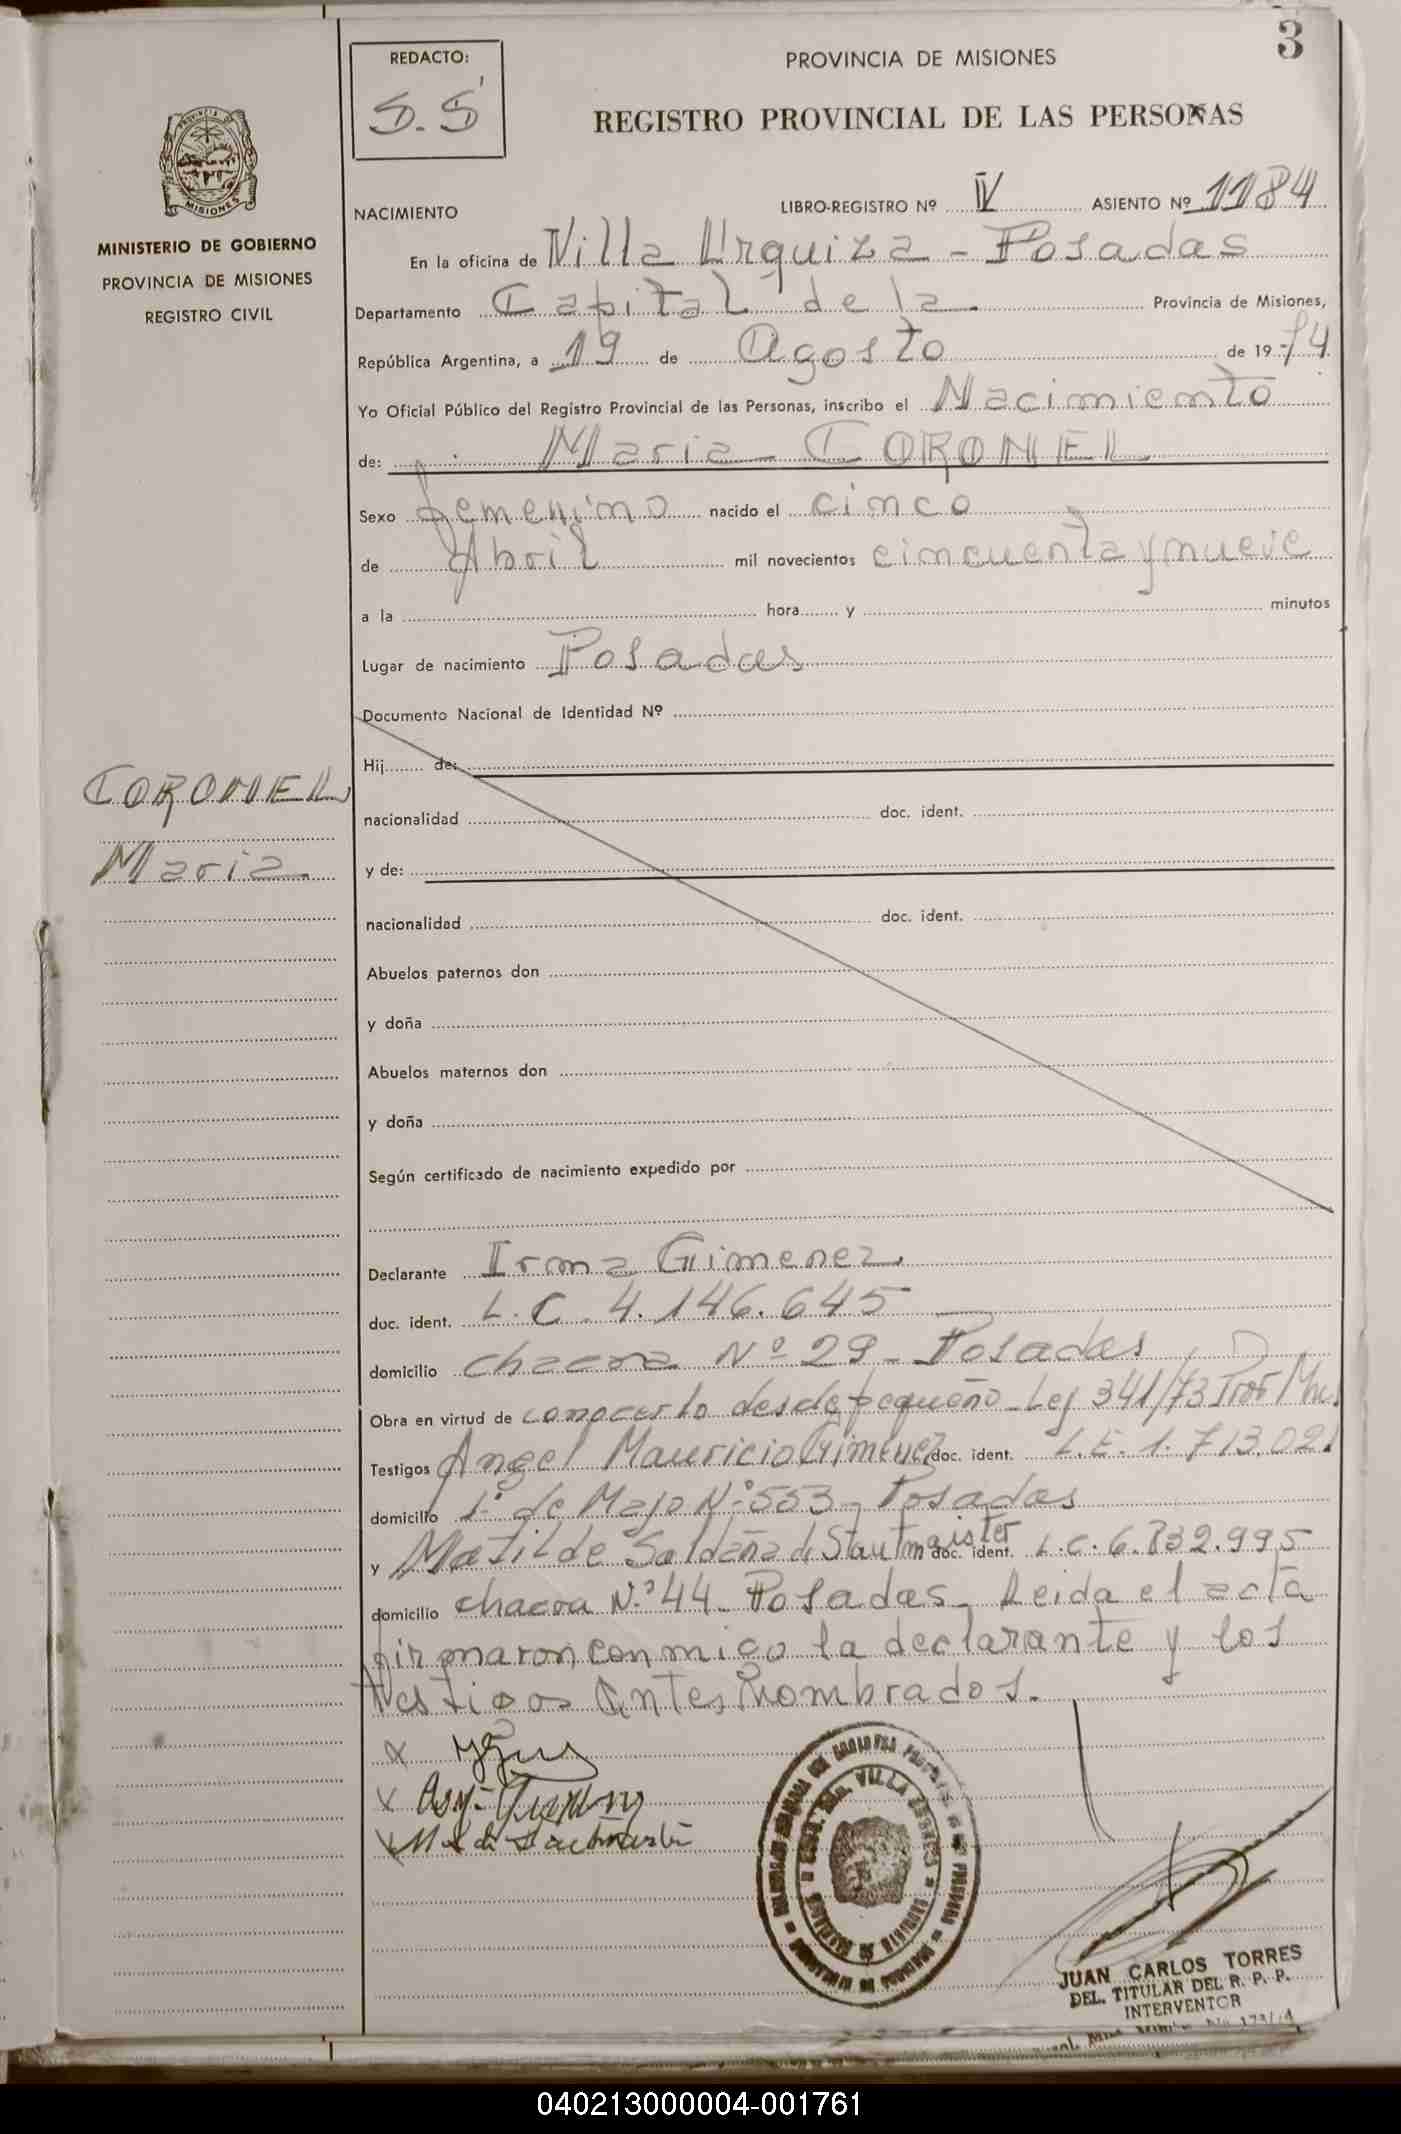 3
REDACTO:
S.S
PROVINCIA DE MISIONES
REGISTRO PROVINCIAL DE LAS PERSONAS
MISIONES
MINISTERIO DE GOBIERNO
PROVINCIA DE MISIONES
REGISTRO CIVIL
NACIMIENTO LIBRO-REGISTRO Nº IV ASIENTO Nº 1184
En la oficina de Villa Urquiza - Posadas
Departamento Capital de la Provincia de Misiones,
República Argentina, a 19 de Agosto de 1974
Yo Oficial Público del Registro Provincial de las Personas, inscribo el Nacimiento
de: Maria CORONEL
Sexo femenino nacido el cinco
de Abril mil novecientos cincuenta y nueve
a la hora y minutos
Lugar de nacimiento Posadas
Documento Nacional de Identidad Nº
Hij de:
CORONEL
nacionalidad doc. ident.
Maria
y de:
nacionalidad doc. ident.
Abuelos paternos don
y doña
Abuelos maternos don
y doña
Según certificado de nacimiento expedido por
Declarante Irma Gimenez
doc. ident. L.C. 4.146.645
domicilio chacra Nº 29 - Posadas
Obra en virtud de conocerlo desde pequeño - Ley 341/73
Testigos Angel Mauricio Gimenez doc. ident. L.E. 1.713.021
domicilio 1º de Mayo Nº 553 - Posadas
y Matilde Saldaña de Stautmaister doc. ident. L.C. 6.832.995
domicilio chacra N.º 44 - Posadas - Leida el acta
firmaron conmigo la declarante y los
testigos antes nombrados.
VILLA URQUIZA
JUAN CARLOS TORRES
DEL. TITULAR DEL R. P. P.
INTERVENTOR
040213000004-001761